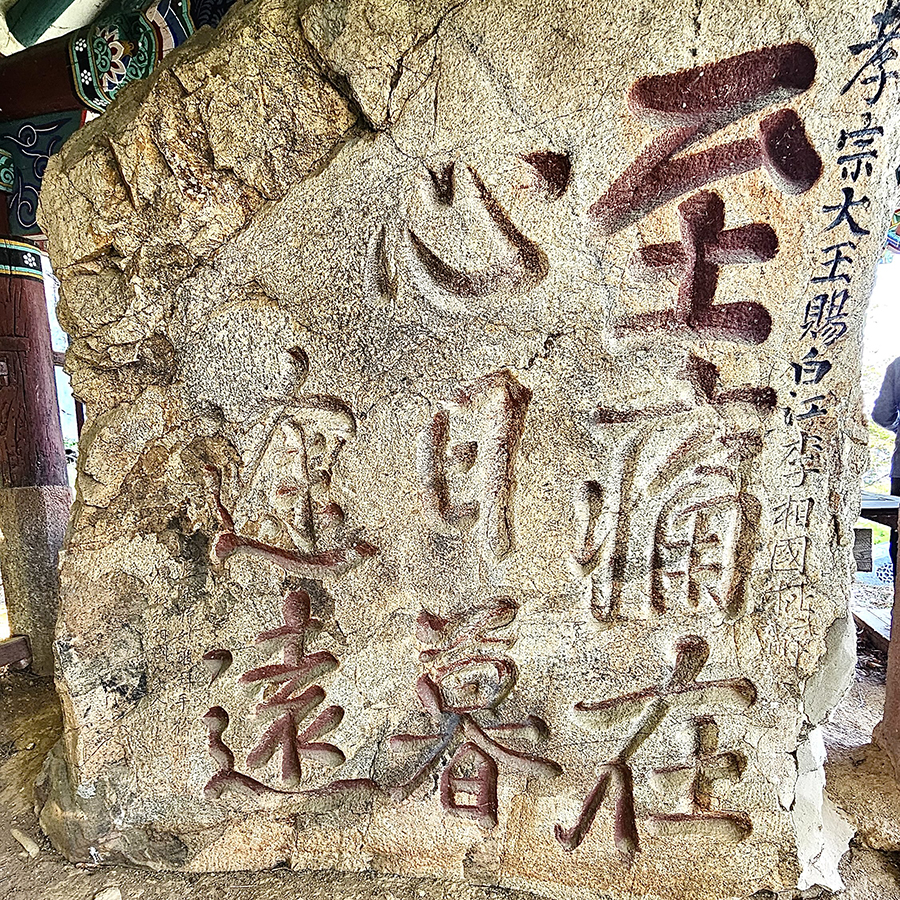 孝宗大王賜白江李相國批辭
至痛在
心日暮
途遠